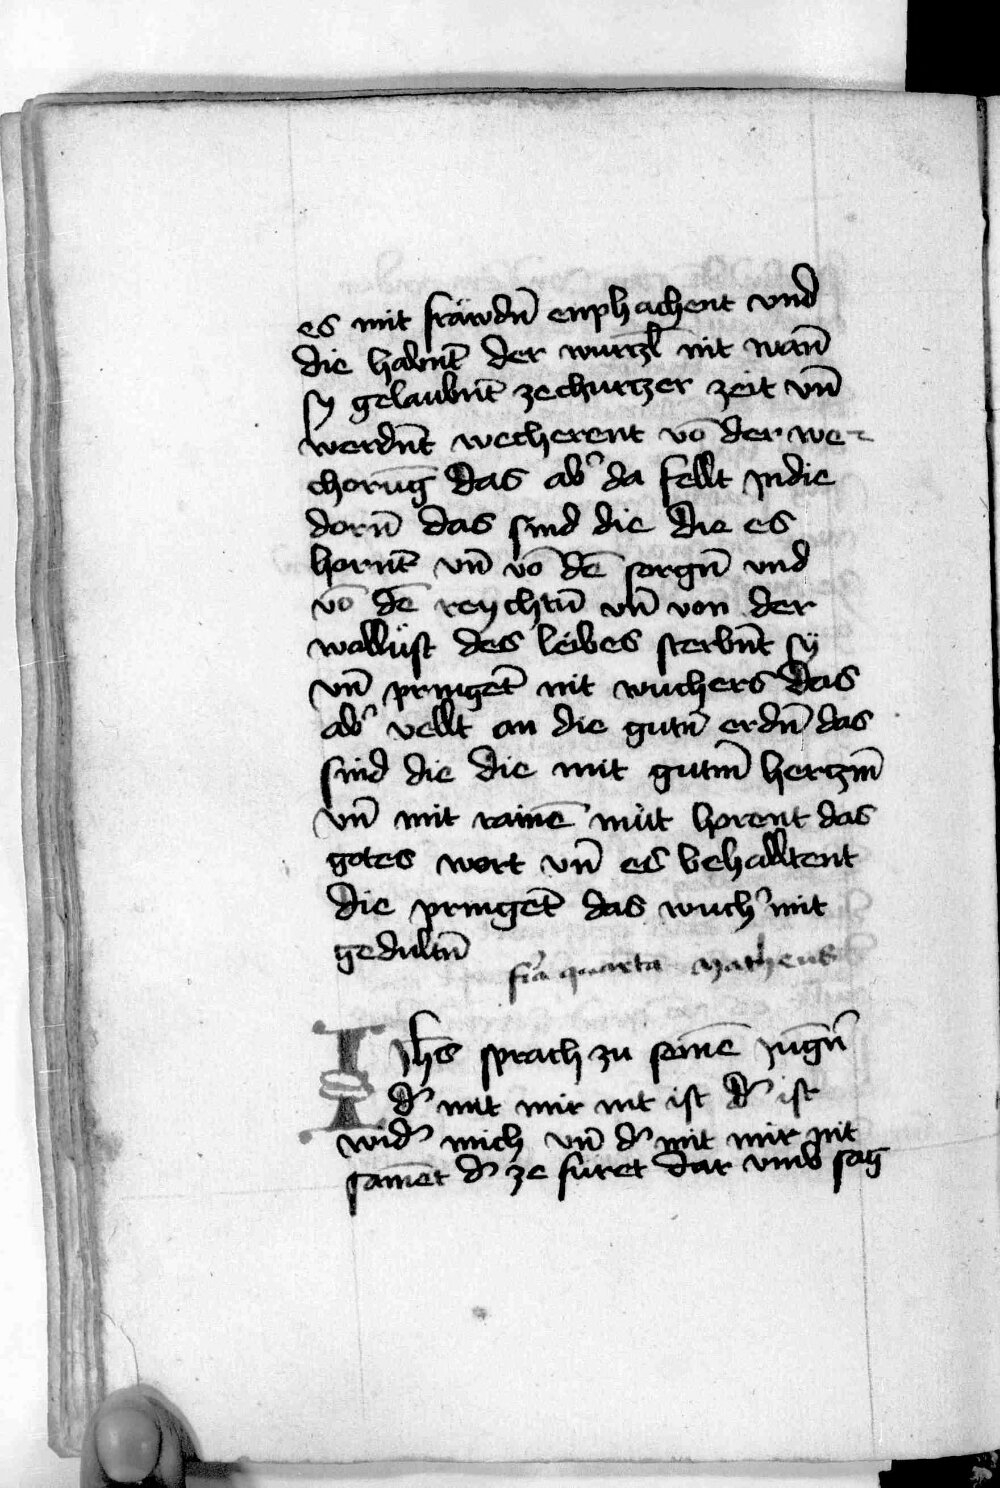 es mit fräwdn̄ enphachent vnd
die habnt̄ der wurczl̄ nit wan̄
sy gelaubnt̄ zechurczer zeit vn̄
werdnt̄ wecherent vō der we-
chorūg das ab̾ da fellt jndie
dorn̄ das sind die die es
hornt̄ vn̄ vō dē sorgn̄ vnd
vō dē reychtn̄ vn̄ von der
wollüst des leibes sterbnt̄ sÿ
vn̄ pringet̄ nit wuchers das
ab̾ vellt an die gutn̄ erdn̄ das
sind die die mit gutm̄ herczm̄
vn̄ mit rainē müt horent das
gotes wort vn̄ es behalltent
die pringet̄ das wuch̾ mit
gedultn̄
fr̄a quarta Matheus
Jhs̄ sprach zu seinē jūgn̄
d̾ mit mir nit ist d̾ ist
wid̾ mich vn̄ d̾ mit mir nit
sam̄et d̾ ze füret dar vmb sag